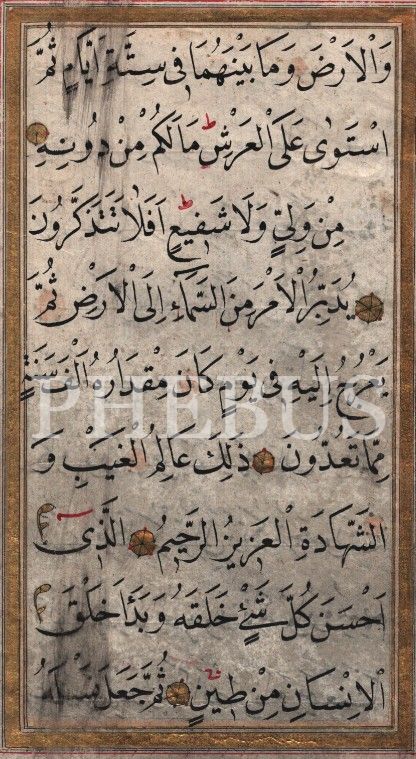 وَالْاَرْضَ وَمَا بَيْنَهُمَا فٖى سِتَّةِ اَيَّامٍ ثُمَّ
اسْتَوٰى عَلَى الْعَرْشِ ط مَا لَكُمْ مِنْ دُونِهٖ
مِنْ وَلِيٍّ وَلَا شَفٖيعٍ ط اَفَلَا تَتَذَكَّرُونَ
يُدَبِّرُ الْاَمْرَ مِنَ السَّمَآءِ اِلَى الْاَرْضِ ثُمَّ
يَعْرُجُ اِلَيْهِ فٖى يَوْمٍ كَانَ مِقْدَارُهُ اَلْفَ سَنَةٍ
PHEBUS
مِمَّا تَعُدُّونَ ذٰلِكَ عَالِمُ الْغَيْبِ وَ
الشَّهَادَةِ الْعَزٖيزُ الرَّحٖيمُ اَلَّذٖى
اَحْسَنَ كُلَّ شَىْءٍ خَلَقَهُ وَبَدَاَ خَلْقَ
الْاِنْسَانِ مِنْ طٖينٍ ثُمَّ جَعَلَ نَسْلَهُ